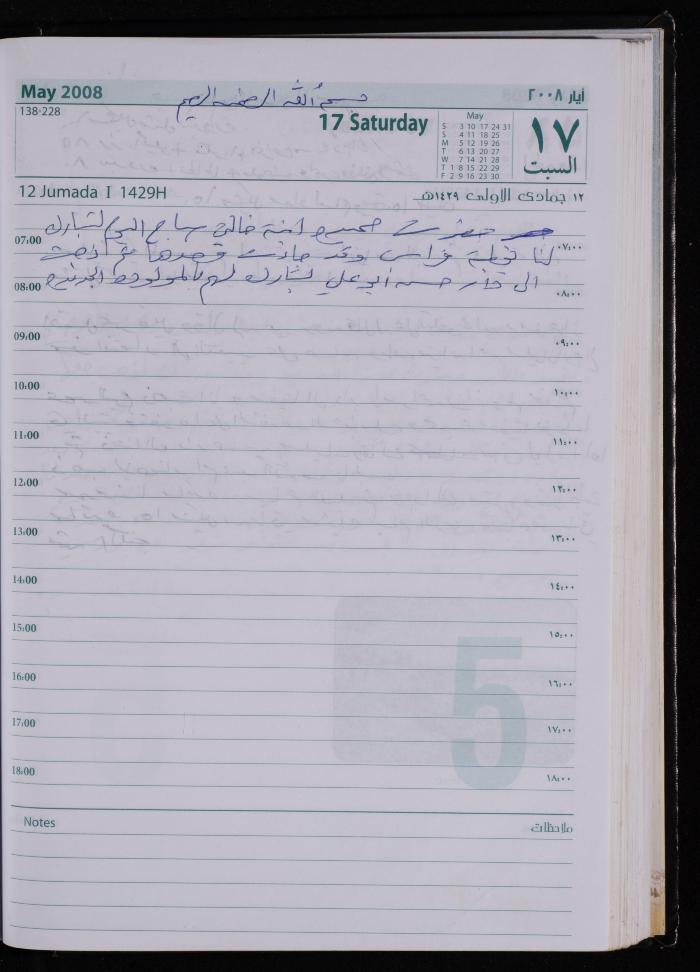 May 2008
بسم الله الرحمن الرحيم
أيار ٢٠٠٨
138-228
17 Saturday
May
S 3 10 17 24 31
S 4 11 18 25
M 5 12 19 26
T 6 13 20 27
W 7 14 21 28
T 1 8 15 22 29
F 2 9 16 23 30
١٧
السبت
12 Jumada I 1429H
١٢ جمادى الاولى ١٤٢٩هـ
حضرت امنة خالتي لتبارك
07:00
٠٧:٠٠
لنا فراس وقد
08:00
الى دار حسن ابو علي لتبارك لهم بالمولودة الجديدة
٠٨:٠٠
09:00
٠٩:٠٠
10:00
١٠:٠٠
11:00
١١:٠٠
12:00
١٢:٠٠
13:00
١٣:٠٠
14:00
١٤:٠٠
15:00
١٥:٠٠
16:00
١٦:٠٠
17:00
١٧:٠٠
18:00
١٨:٠٠
5
Notes
ملاحظات